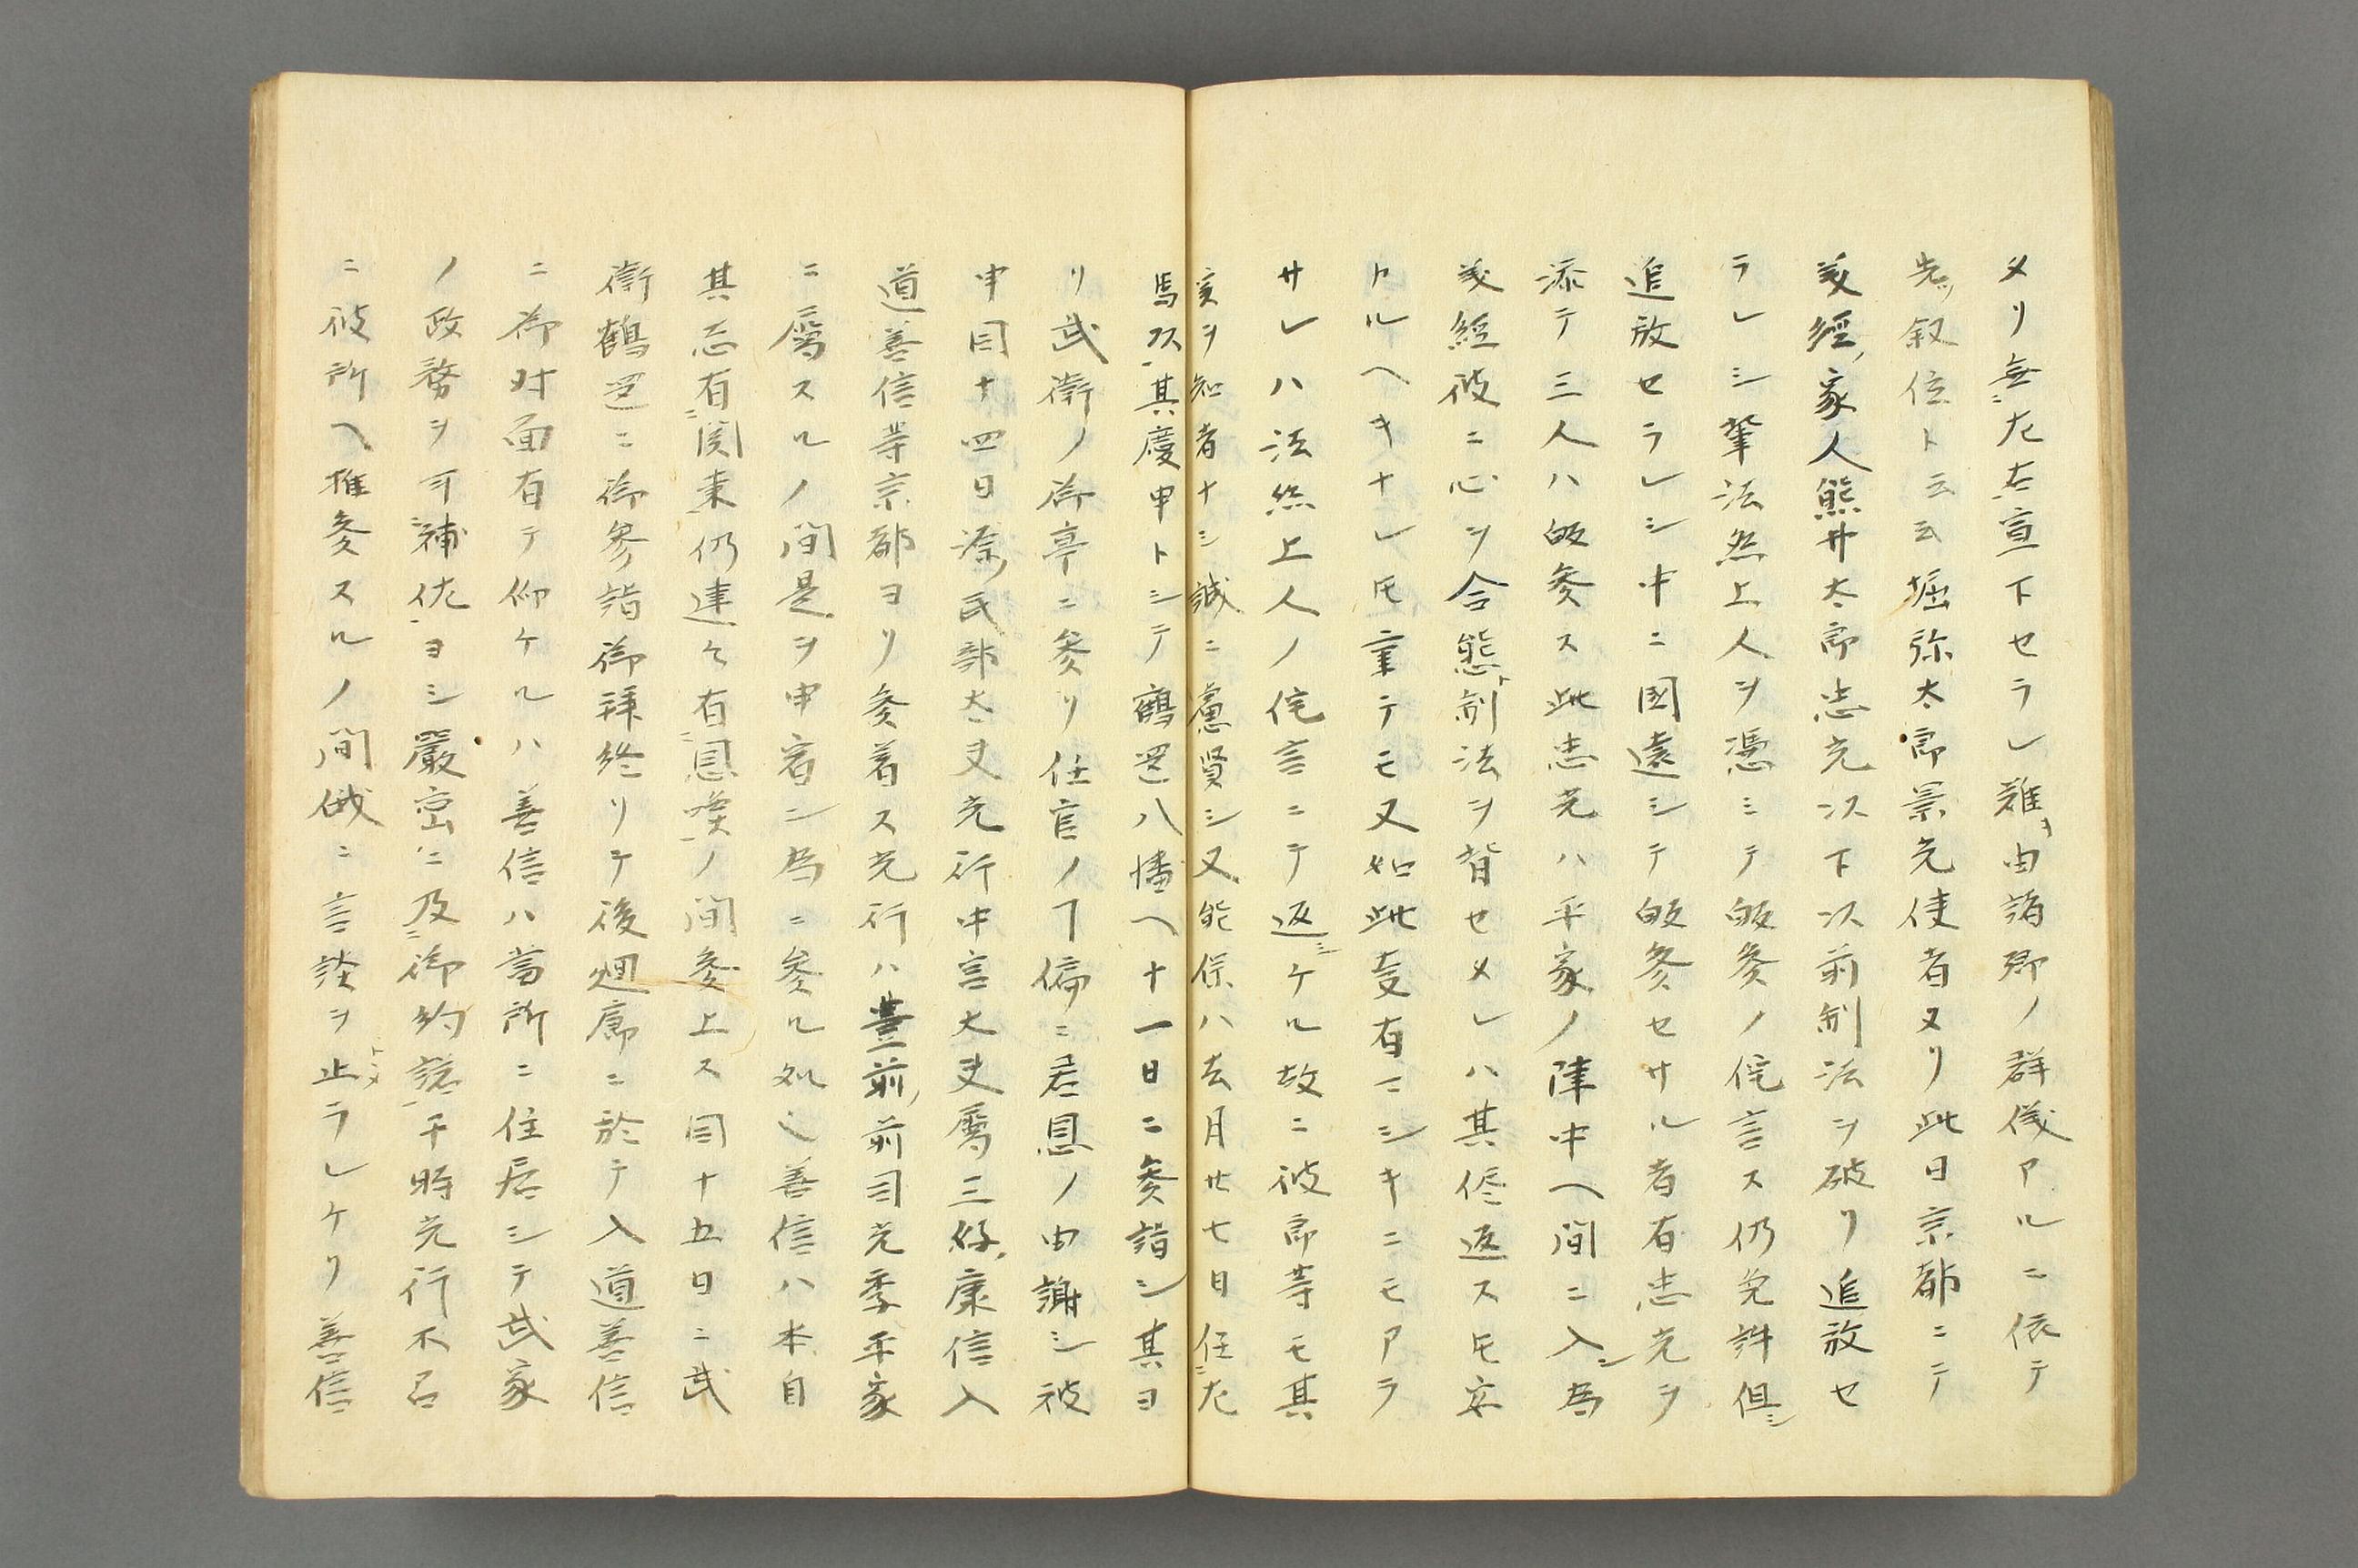 メリ無左右宣下セラレ難キ由諸卿ノ群儀アルニ依テ
先ツ叙位ト云云堀弥太郎景光使者タリ此日京都ニテ
義経ノ家人熊井太郎忠光以下以前制法ヲ破リ追放セ
ラレシ輩法然上人ヲ憑ミテ皈参ノ侘言ス仍免許但シ
追放セラレシ中ニ國遠シテ皈参セサル者有忠光ヲ
添テ三人ハ皈参ス此忠光ハ平家ノ陣中ヘ間ニ入シ為
義経彼ニ心ヲ合態ト制法ヲ背セメレハ其侭返スモ安
カルヘキナレ𪜈重テモ又如此支有マシキニモアラ
サレハ法然上人ノ侘言ニテ返シケル故ニ彼郎等モ其
実ヲ知者ナシ誠ニ慮賢シ又能保ハ去月廿七日任左
馬頭其慶申トシテ鶴岡八幡ヘ十一日ニ参詣シ其ヨ
リ武衛ノ御亭ニ参リ任官ノ丁偏ニ君恩ノ由謝シ被
申同十四日源氏部大夫光行中宮大夫属三好康信入
道善信等京都ヨリ参着ス光行ハ豊前前司光季平家
ニ属スルノ間是ヲ申宥ン為ニ参ル処也善信ハ本自
其志有関東仍連々有恩喚ノ間参上ス同十五日ニ武
衛鶴岡ニ御参詣御拝終リテ後廻廊ニ於テ入道善信
ニ御対面有テ仰ケルハ善信ハ當所ニ住居シテ武家
ノ政務ヲ可補佐ヨシ嚴密ニ及御約諾于時光行不召
ニ彼所ヘ推参スルノ間俄ニ言談ヲ止ラレケリ善信